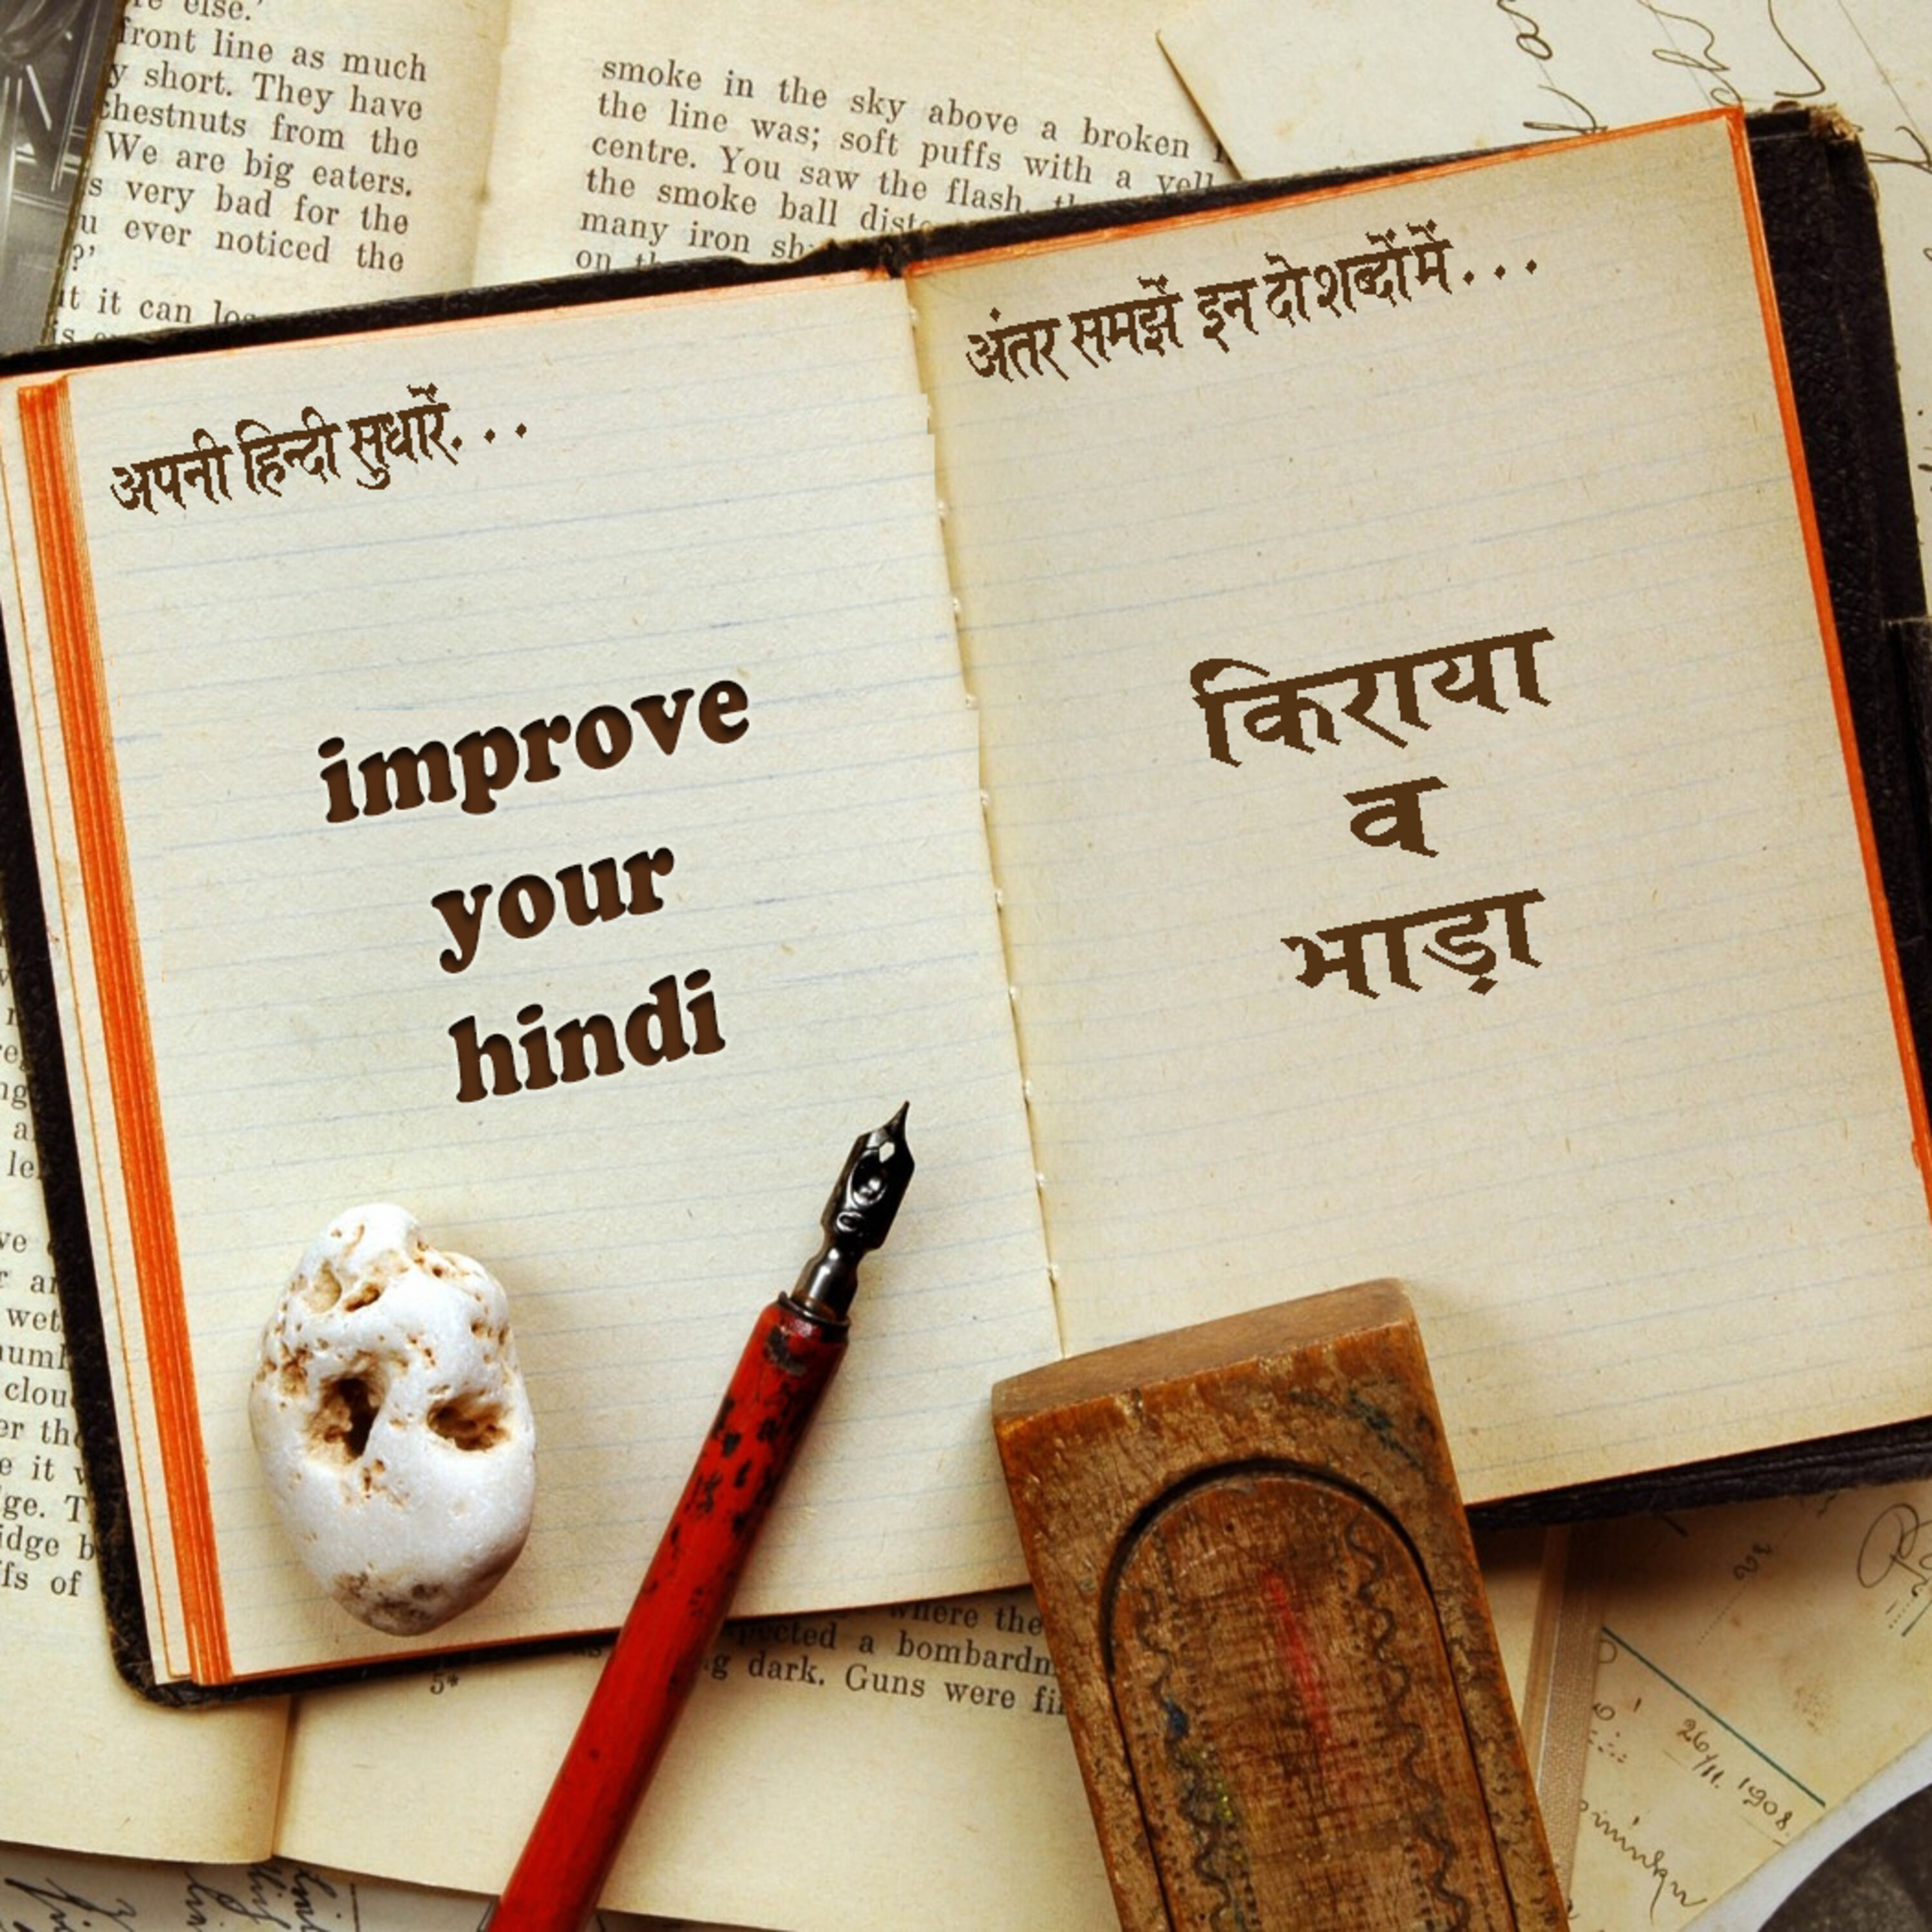 re else.'
front line as much
y short. They have
chestnuts from the
We are big eaters.
s very bad for the
u ever noticed the
?'
it it can
smoke in the sky above a broken
the line was; soft puffs with a
centre. You saw the flash,
the smoke ball
many iron
on
अपनी हिन्दी सुधारें. . .
improve
your
hindi
अंतर समझें इन दो शब्दों में . . .
किराया
व
भाड़ा
a
le
ve
r
wet
clou
er the
e it
ge. T
idge b
fs of
where the
a bombardm
g dark. Guns were
5*
26/11. 1908.